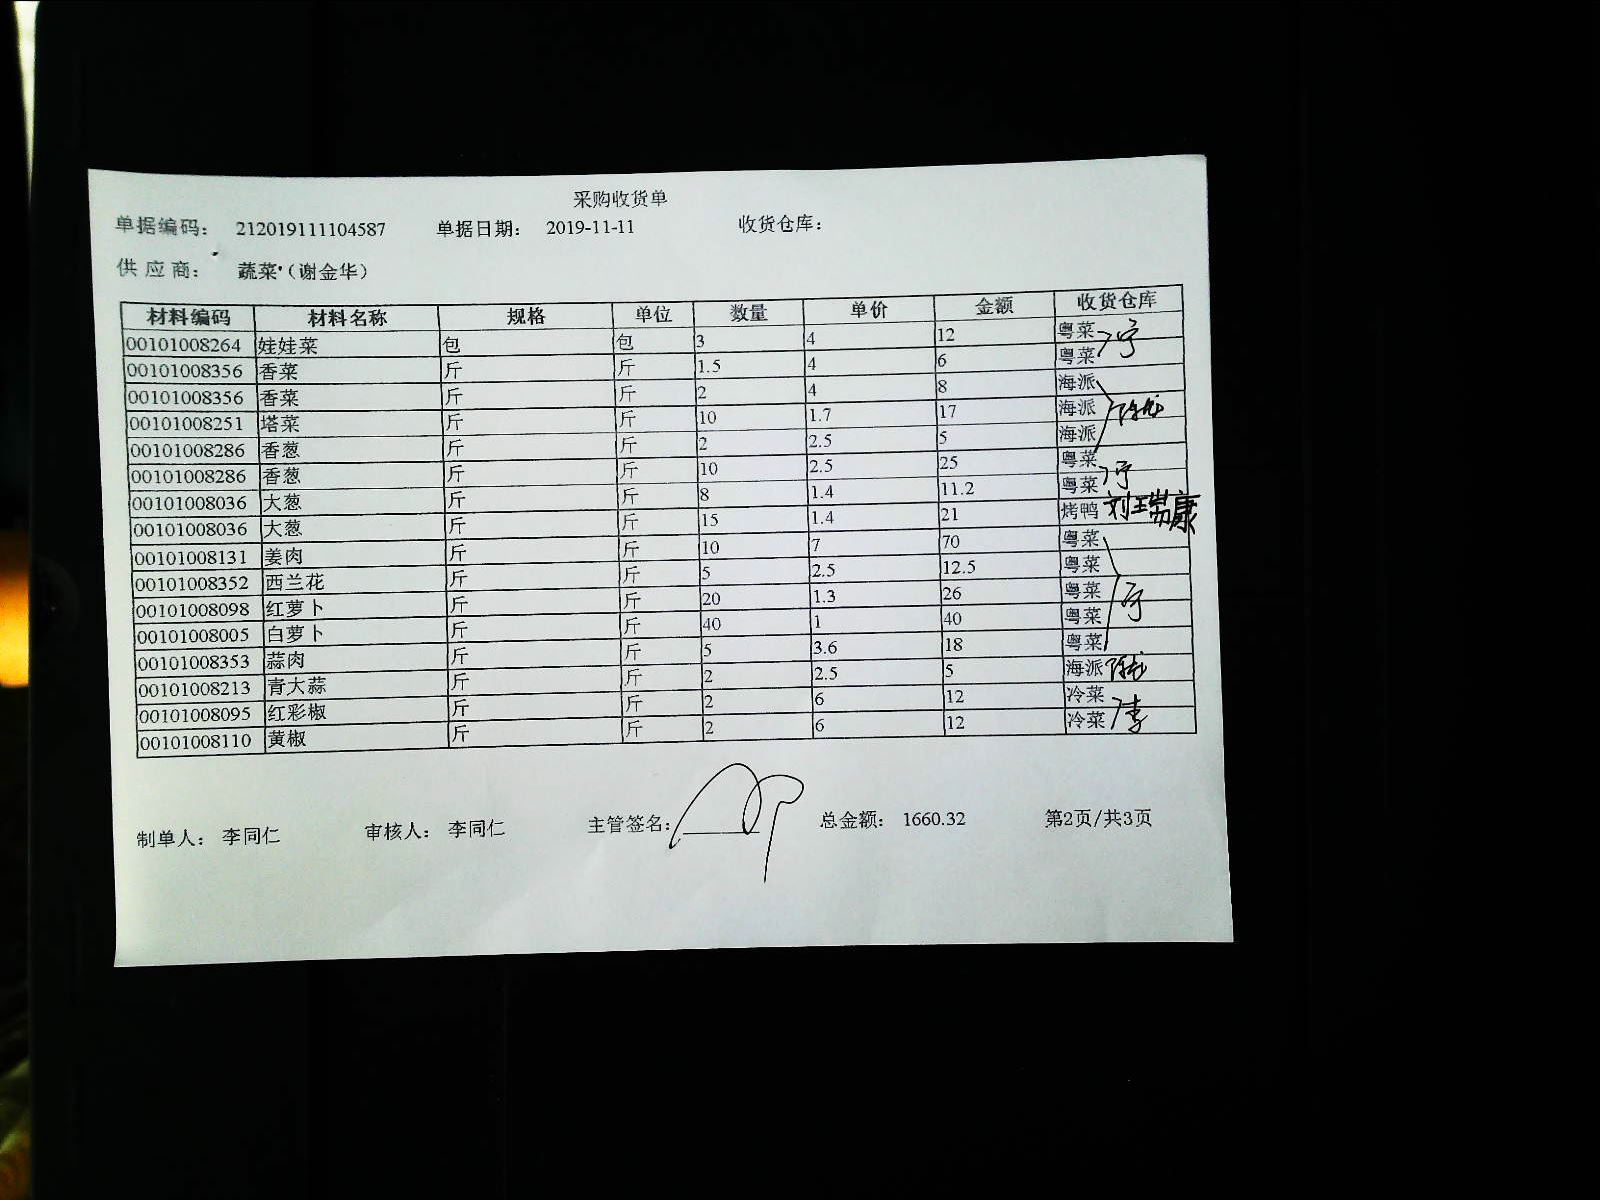 采购收货单
单据编码： 212019111104587 单据日期： 2019-11-11 收货仓库：
供应商： 蔬菜（谢金华）
材料编码 材料名称 规格 单位 数量 单价 金额 收货仓库
00101008264 娃娃菜 包 包 3 4 12 粤菜
00101008356 香菜 斤 斤 1.5 4 6 粤菜
00101008356 香菜 斤 斤 2 4 8 海派
00101008251 塔菜 斤 斤 10 1.7 17 海派
00101008286 香葱 斤 斤 2 2.5 5 海派
00101008286 香葱 斤 斤 10 2.5 25 粤菜
00101008036 大葱 斤 斤 8 1.4 11.2 粤菜
00101008036 大葱 斤 斤 15 1.4 21 烤鸭 刘瑞康
00101008131 姜肉 斤 斤 10 7 70 粤菜
00101008352 西兰花 斤 斤 5 2.5 12.5 粤菜
00101008098 红萝卜 斤 斤 20 1.3 26 粤菜
00101008005 白萝卜 斤 斤 40 1 40 粤菜
00101008353 蒜肉 斤 斤 5 3.6 18 粤菜
00101008213 青大蒜 斤 斤 2 2.5 5 海派
00101008095 红彩椒 斤 斤 2 6 12 冷菜
00101008110 黄椒 斤 斤 2 6 12 冷菜 李
制单人： 李同仁 审核人： 李同仁 主管签名： 总金额： 1660.32 第2页/共3页